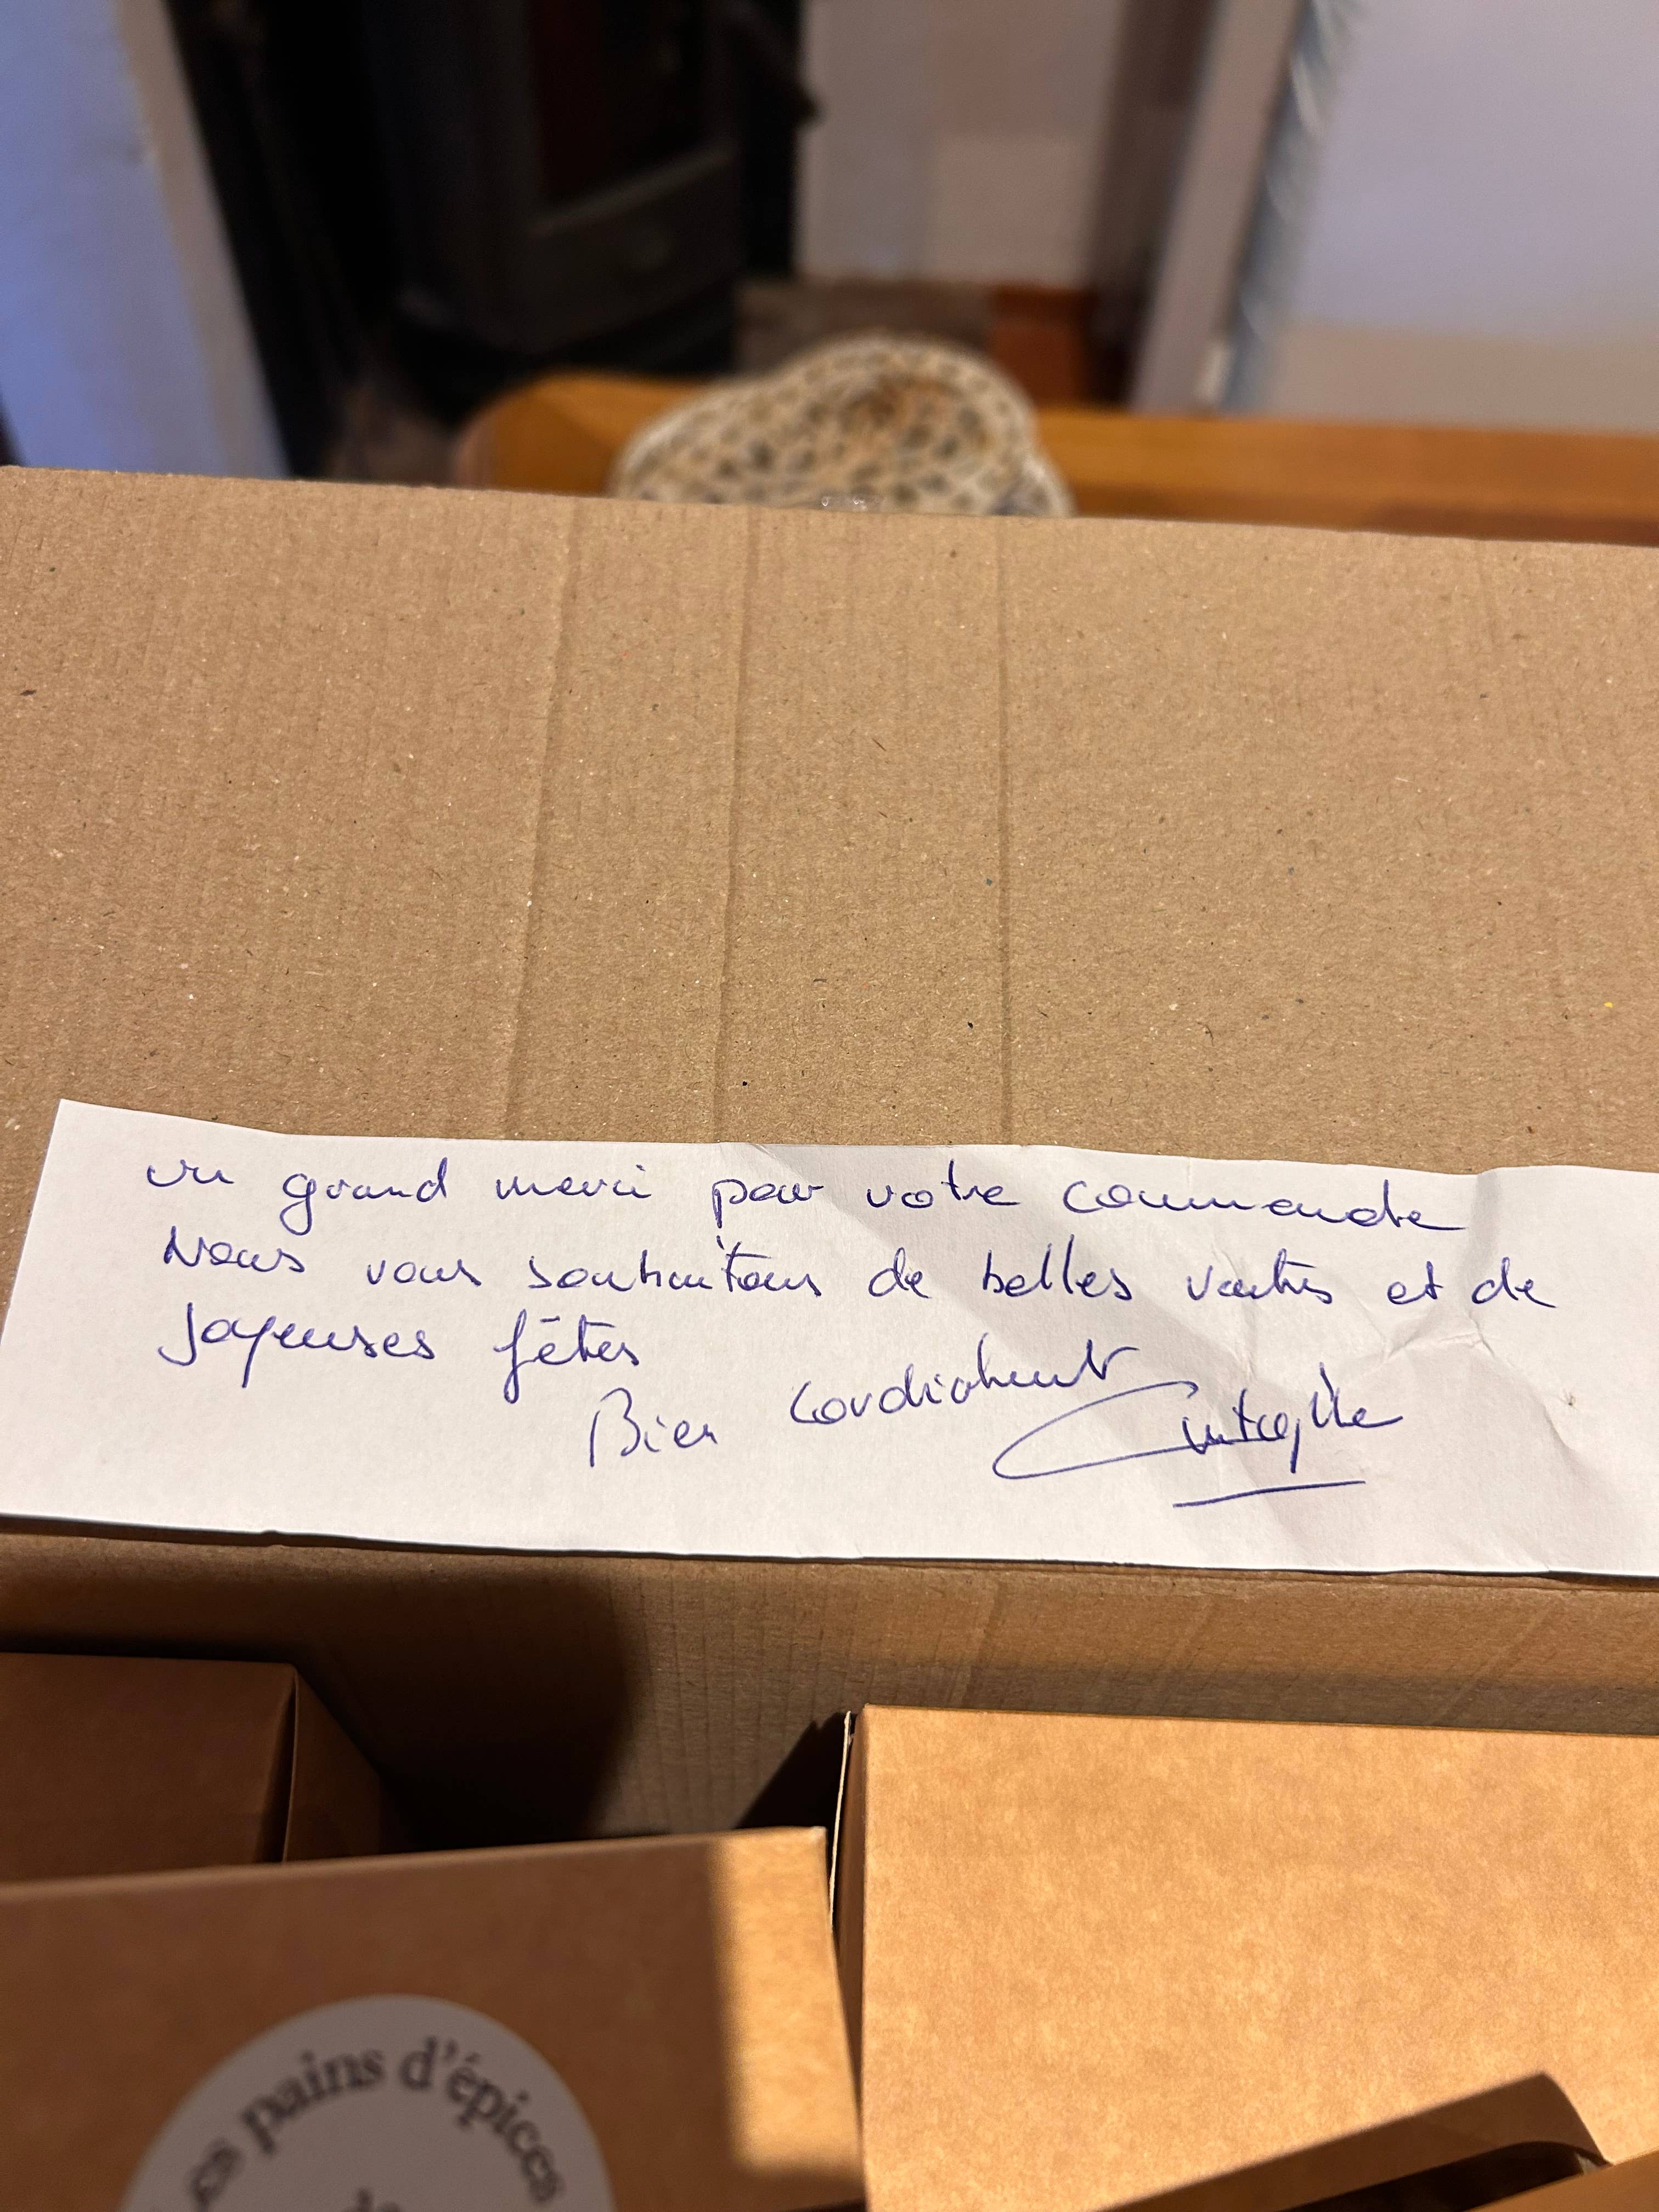 un grand merci pour votre commande
Nous vous souhaitons de belles ventes et de
Joyeuses fêtes
Bien cordialement
es pains d'épices
de